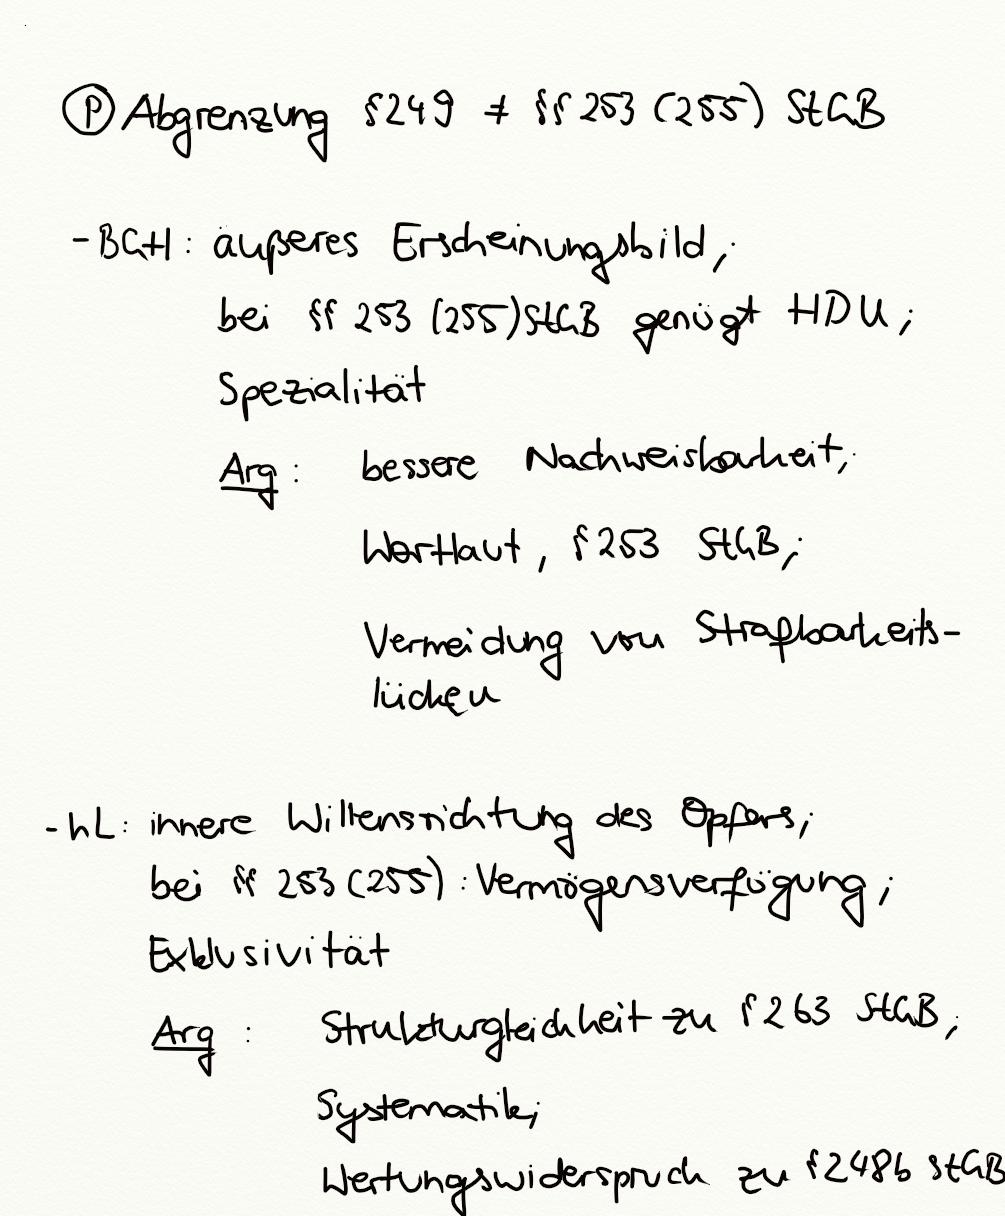 Ⓟ Abgrenzung § 249 ≠ §§ 253 (255) StGB
- BGH: äußeres Erscheinungsbild;
bei §§ 253 (255) StGB genügt HDU;
Spezialität
Arg: bessere Nachweisbarkeit;
Wortlaut, § 253 StGB;
Vermeidung von Strafbarkeits-
lücken
- hL: innere Willensrichtung des Opfers;
bei §§ 253 (255): Vermögensverfügung;
Exklusivität
Arg: Strukturgleichheit zu § 263 StGB;
Systematik;
Wertungswiderspruch zu § 248b StGB